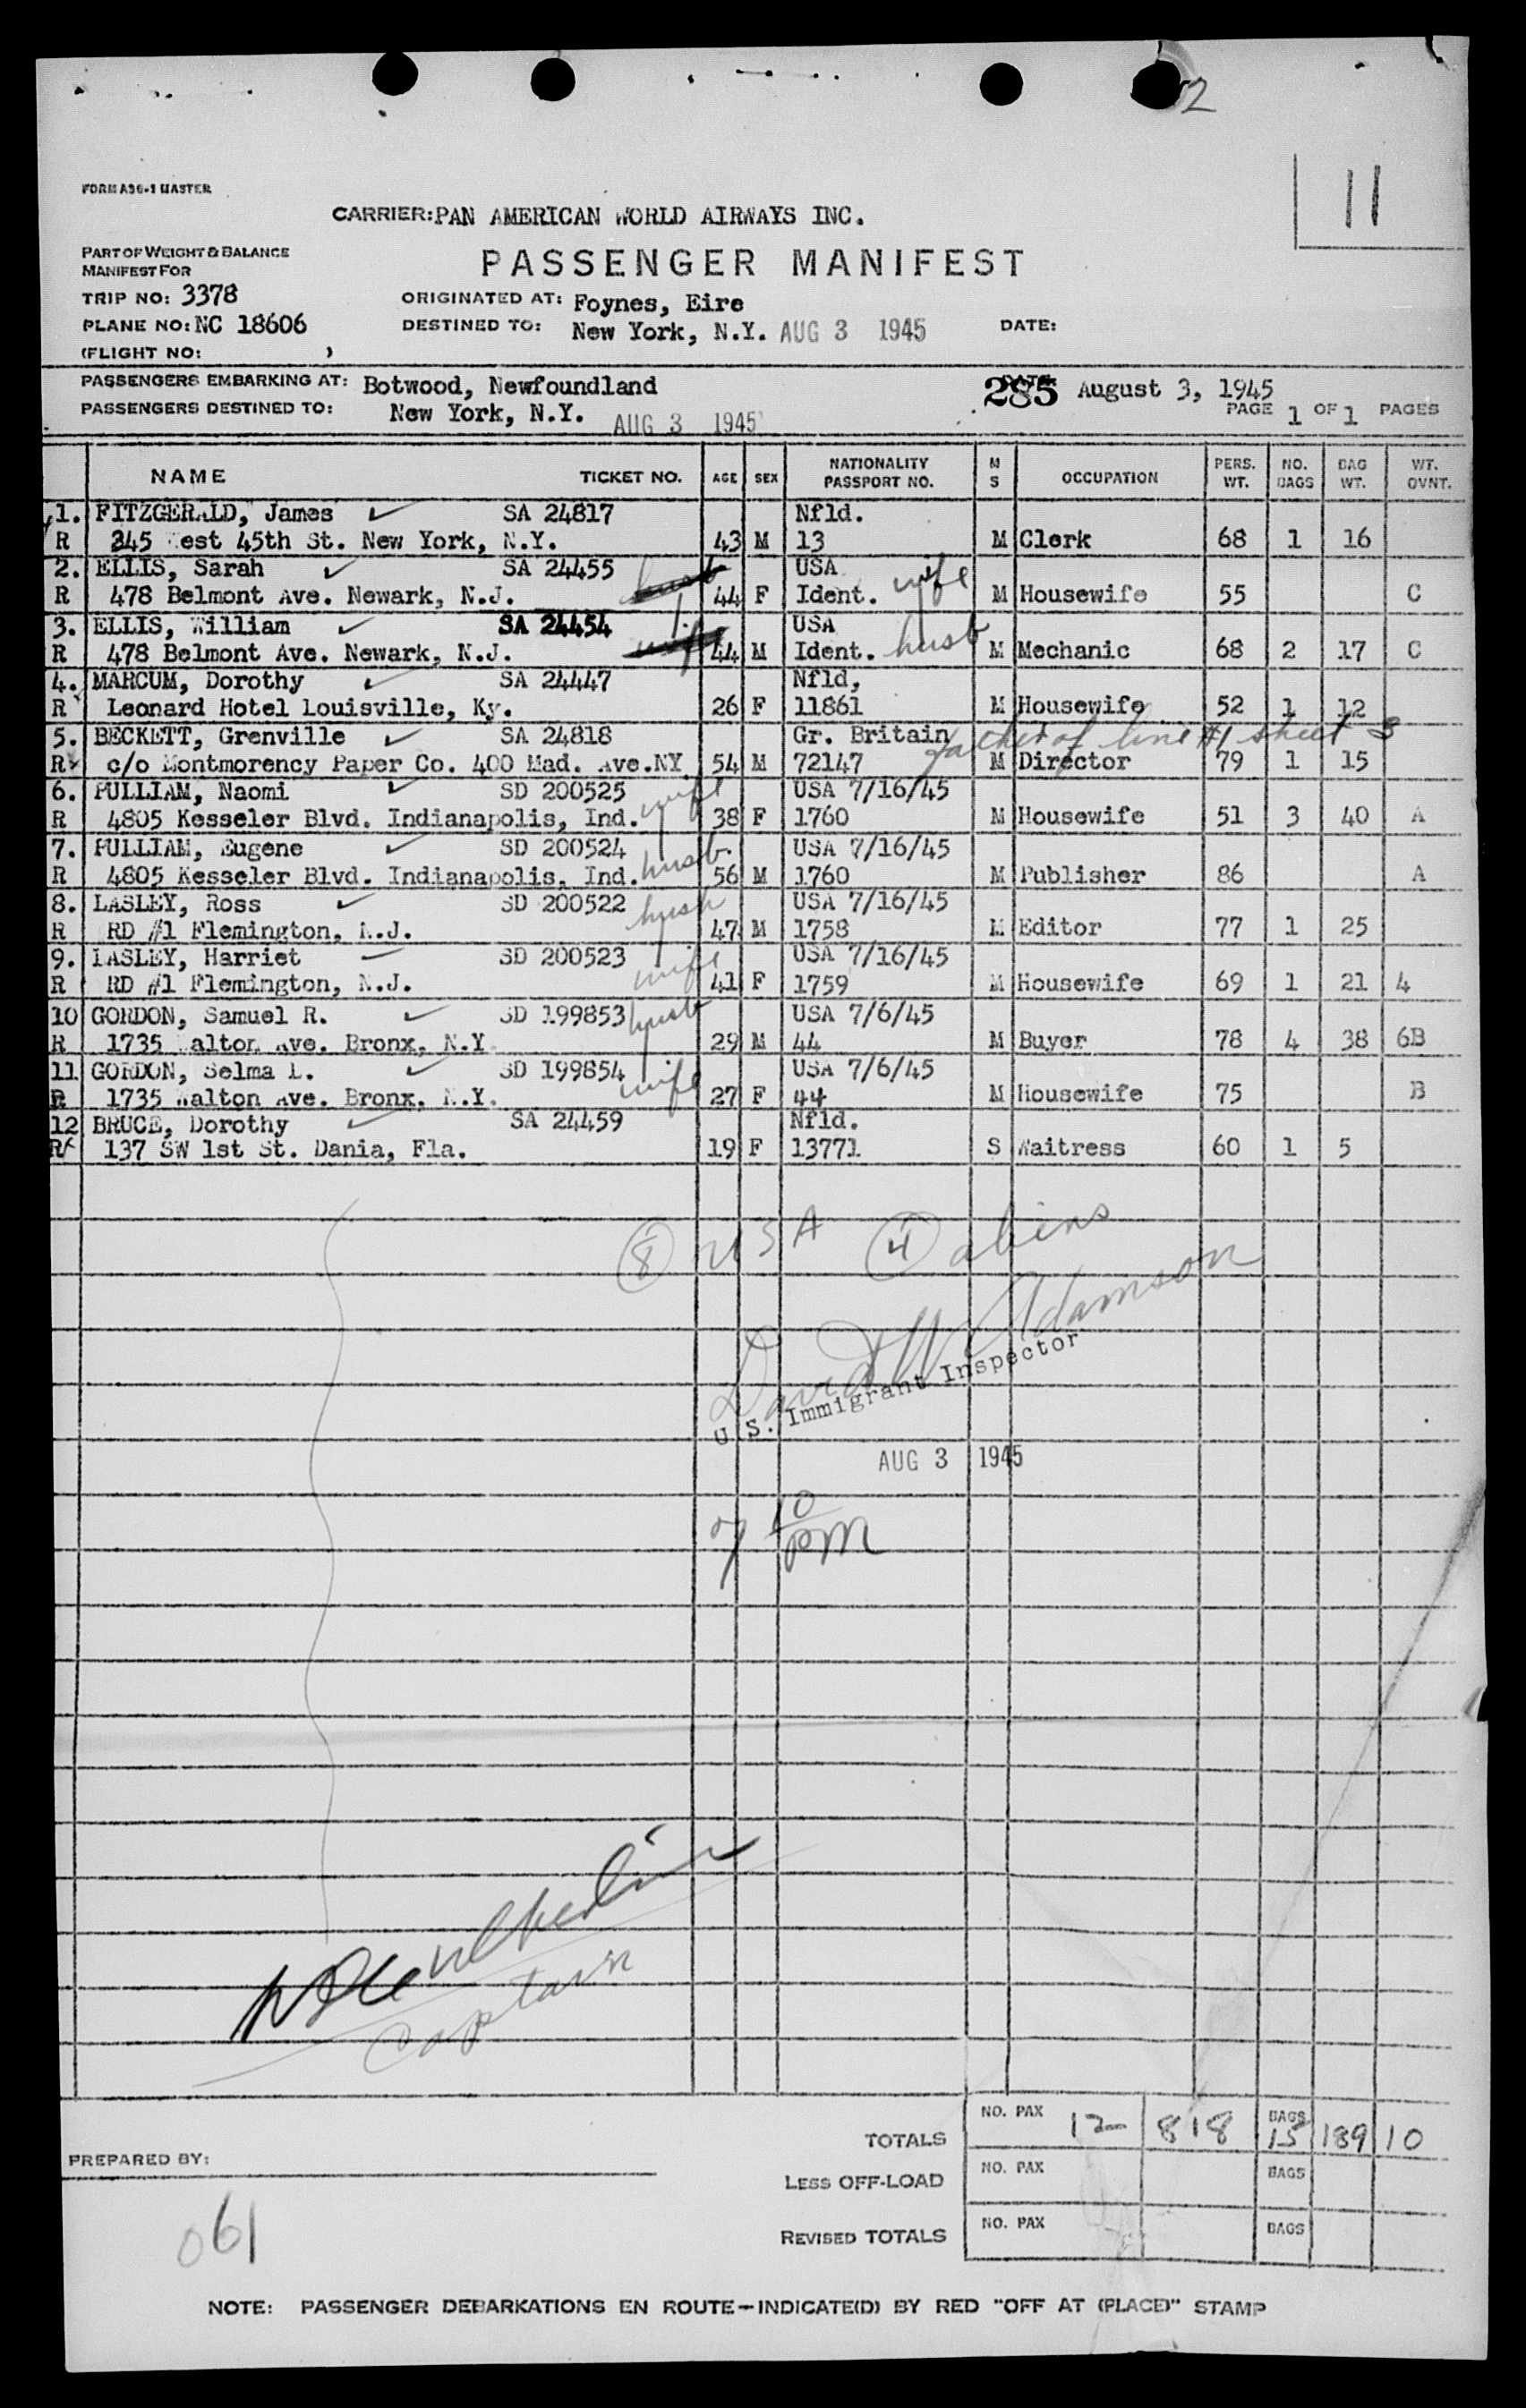 2
11
FORM A36-1 MASTER
CARRIER: PAN AMERICAN WORLD AIRWAYS INC.
PART OF WEIGHT & BALANCE
MANIFEST FOR
PASSENGER MANIFEST
TRIP NO: 3378 ORIGINATED AT: Foynes, Eire
PLANE NO: NC 18606 DESTINED TO: New York, N.Y. AUG 3 1945 DATE:
(FLIGHT NO: )
PASSENGERS EMBARKING AT: Botwood, Newfoundland 285 August 3, 1945
PASSENGERS DESTINED TO: New York, N.Y. AUG 3 1945 PAGE 1 OF 1 PAGES
NAME TICKET NO. AGE SEX NATIONALITY PASSPORT NO. M S OCCUPATION PERS. WT. NO. BAGS BAG WT. WT. OVNT.
1. FITZGERALD, James SA 24817 Nfld.
R 345 West 45th St. New York, N.Y. 43 M 13 M Clerk 68 1 16
2. ELLIS, Sarah SA 24455 husb USA wife
R 478 Belmont Ave. Newark, N.J. 44 F Ident. M Housewife 55 C
3. ELLIS, William SA 24454 wife USA husb
R 478 Belmont Ave. Newark, N.J. 44 M Ident. M Mechanic 68 2 17 C
4. MARCUM, Dorothy SA 24447 Nfld,
R Leonard Hotel Louisville, Ky. 26 F 11861 M Housewife 52 1 12
5. BECKETT, Grenville SA 24818 Gr. Britain father of line #1 sheet 3
R c/o Montmorency Paper Co. 400 Mad. Ave.NY 54 M 72147 M Director 79 1 15
6. PULLIAM, Naomi SD 200525 wife USA 7/16/45
R 4805 Kesseler Blvd. Indianapolis, Ind. 38 F 1760 M Housewife 51 3 40 A
7. PULLIAM, Eugene SD 200524 husb. USA 7/16/45
R 4805 Kesseler Blvd. Indianapolis, Ind. 56 M 1760 M Publisher 86 A
8. LASLEY, Ross SD 200522 husb USA 7/16/45
R RD #1 Flemington, N.J. 47 M 1758 M Editor 77 1 25
9. LASLEY, Harriet SD 200523 wife USA 7/16/45
R RD #1 Flemington, N.J. 41 F 1759 M Housewife 69 1 21 4
10 GORDON, Samuel R. SD 199853 husb USA 7/6/45
R 1735 Walton Ave. Bronx, N.Y. 29 M 44 M Buyer 78 4 38 6B
11 GORDON, Selma L. SD 199854 wife USA 7/6/45
R 1735 Walton Ave. Bronx, N.Y. 27 F 44 M Housewife 75 B
12 BRUCE, Dorothy SA 24459 Nfld.
R 137 SW 1st St. Dania, Fla. 19 F 13771 S Waitress 60 1 5
8 USA 4 aliens
David W Adamson
U.S. Immigrant Inspector
AUG 3 1945
7 10 pm
Captain
TOTALS NO. PAX 12 818 BAGS 15 189 10
PREPARED BY:
LESS OFF-LOAD NO. PAX BAGS
REVISED TOTALS NO. PAX BAGS
061
NOTE: PASSENGER DEBARKATIONS EN ROUTE—INDICATE(D) BY RED "OFF AT (PLACE)" STAMP